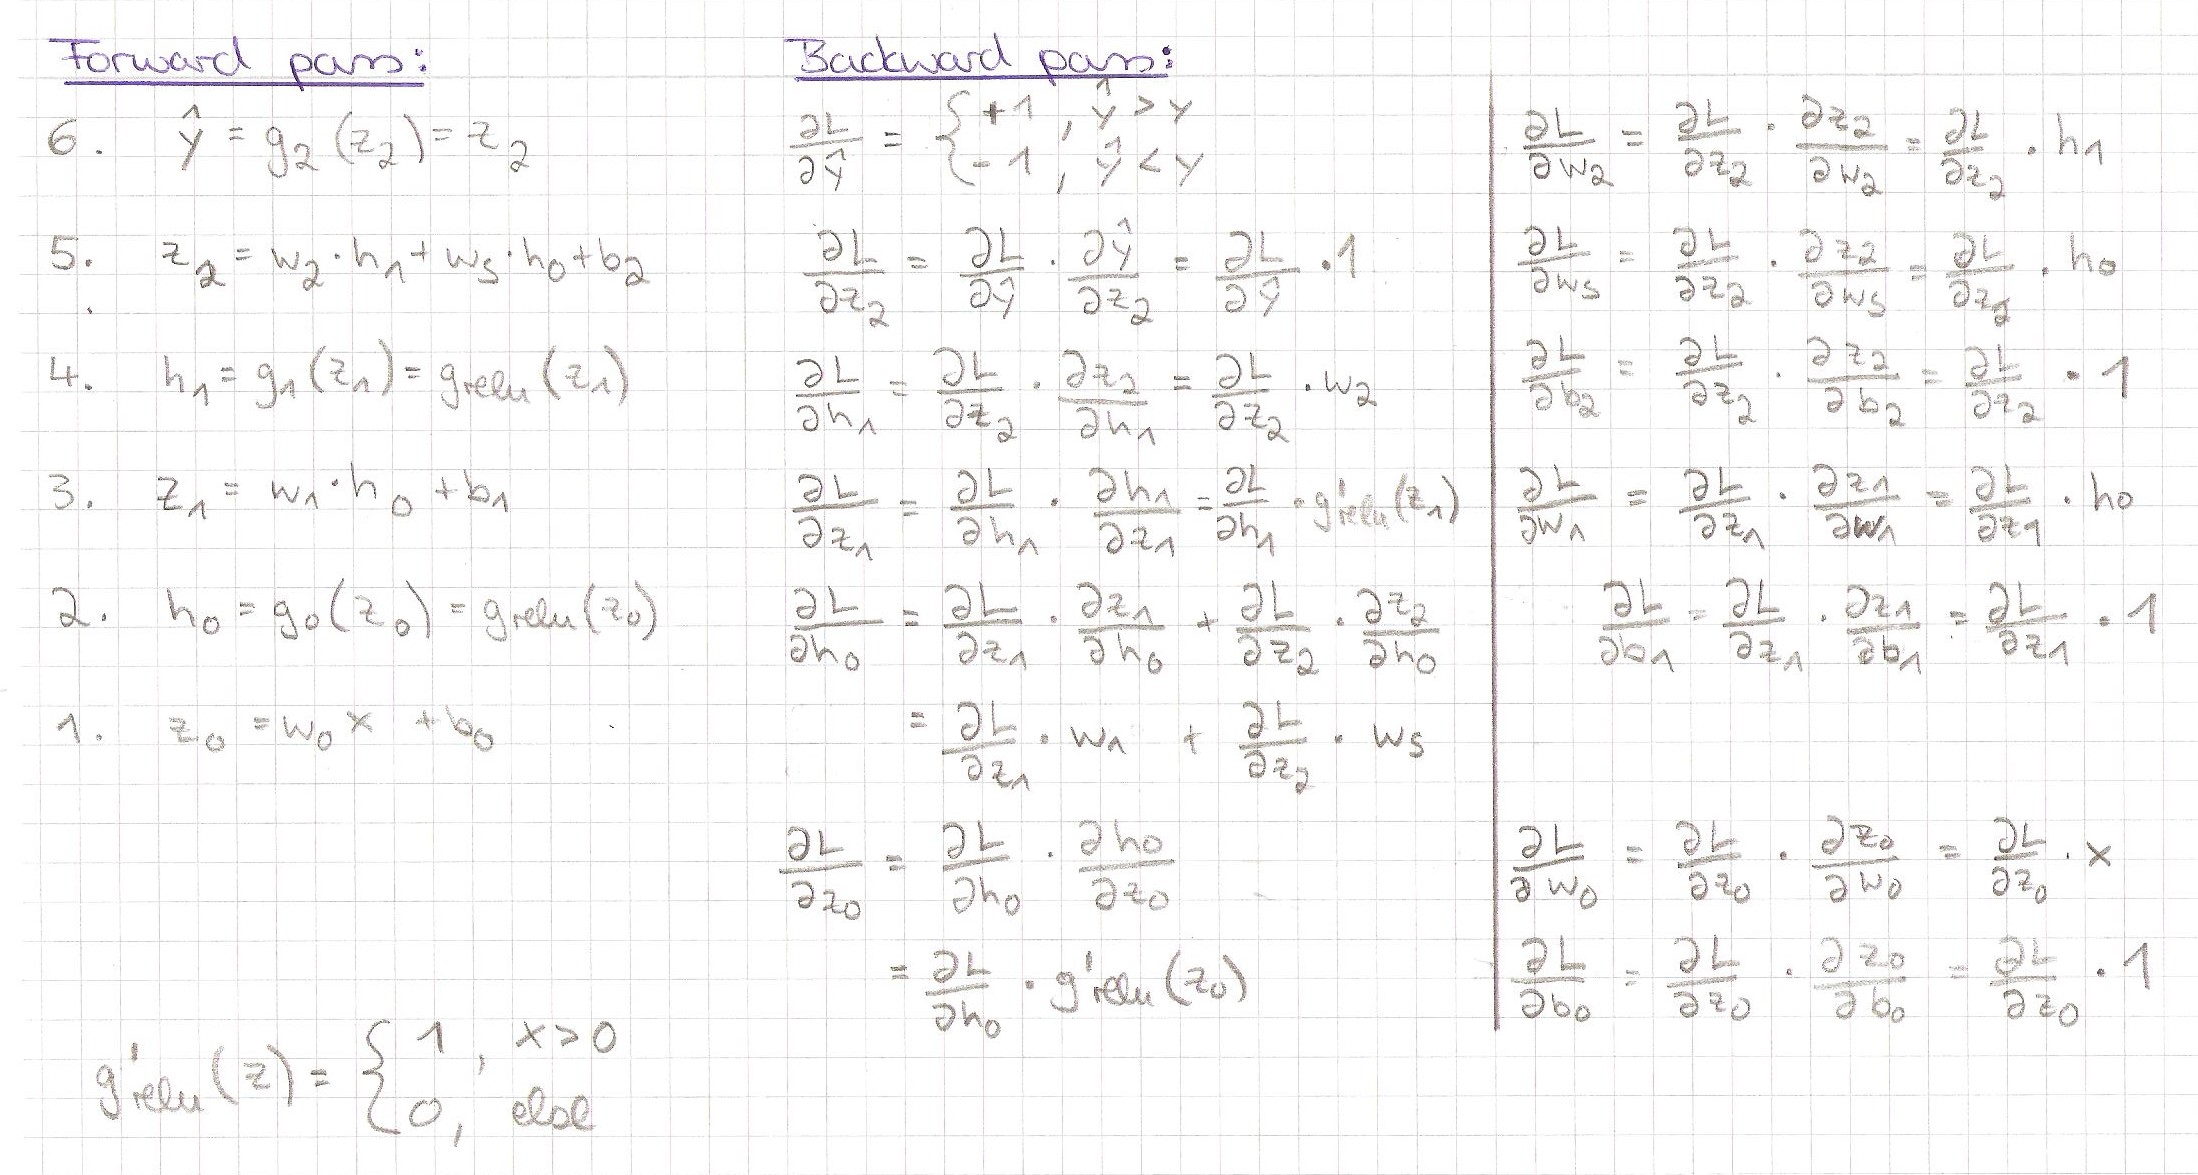 Forward pass:
6. ŷ = g₂(z₂) = z₂
5. z₂ = w₂·h₁ + ws·h₀ + b₂
4. h₁ = g₁(z₁) = grelu(z₁)
3. z₁ = w₁·h₀ + b₁
2. h₀ = g₀(z₀) = grelu(z₀)
1. z₀ = w₀x + b₀
g'relu(z) = { 1, x>0
0, else
Backward pass:
∂L/∂ŷ = { +1, ŷ > y
-1, ŷ < y
∂L/∂z₂ = ∂L/∂ŷ · ∂ŷ/∂z₂ = ∂L/∂ŷ · 1
∂L/∂h₁ = ∂L/∂z₂ · ∂z₂/∂h₁ = ∂L/∂z₂ · w₂
∂L/∂z₁ = ∂L/∂h₁ · ∂h₁/∂z₁ = ∂L/∂h₁ · g'relu(z₁)
∂L/∂h₀ = ∂L/∂z₁ · ∂z₁/∂h₀ + ∂L/∂z₂ · ∂z₂/∂h₀
= ∂L/∂z₁ · w₁ + ∂L/∂z₂ · ws
∂L/∂z₀ = ∂L/∂h₀ · ∂h₀/∂z₀
= ∂L/∂h₀ · g'relu(z₀)
∂L/∂w₂ = ∂L/∂z₂ · ∂z₂/∂w₂ = ∂L/∂z₂ · h₁
∂L/∂ws = ∂L/∂z₂ · ∂z₂/∂ws = ∂L/∂z₂ · h₀
∂L/∂b₂ = ∂L/∂z₂ · ∂z₂/∂b₂ = ∂L/∂z₂ · 1
∂L/∂w₁ = ∂L/∂z₁ · ∂z₁/∂w₁ = ∂L/∂z₁ · h₀
∂L/∂b₁ = ∂L/∂z₁ · ∂z₁/∂b₁ = ∂L/∂z₁ · 1
∂L/∂w₀ = ∂L/∂z₀ · ∂z₀/∂w₀ = ∂L/∂z₀ · x
∂L/∂b₀ = ∂L/∂z₀ · ∂z₀/∂b₀ = ∂L/∂z₀ · 1